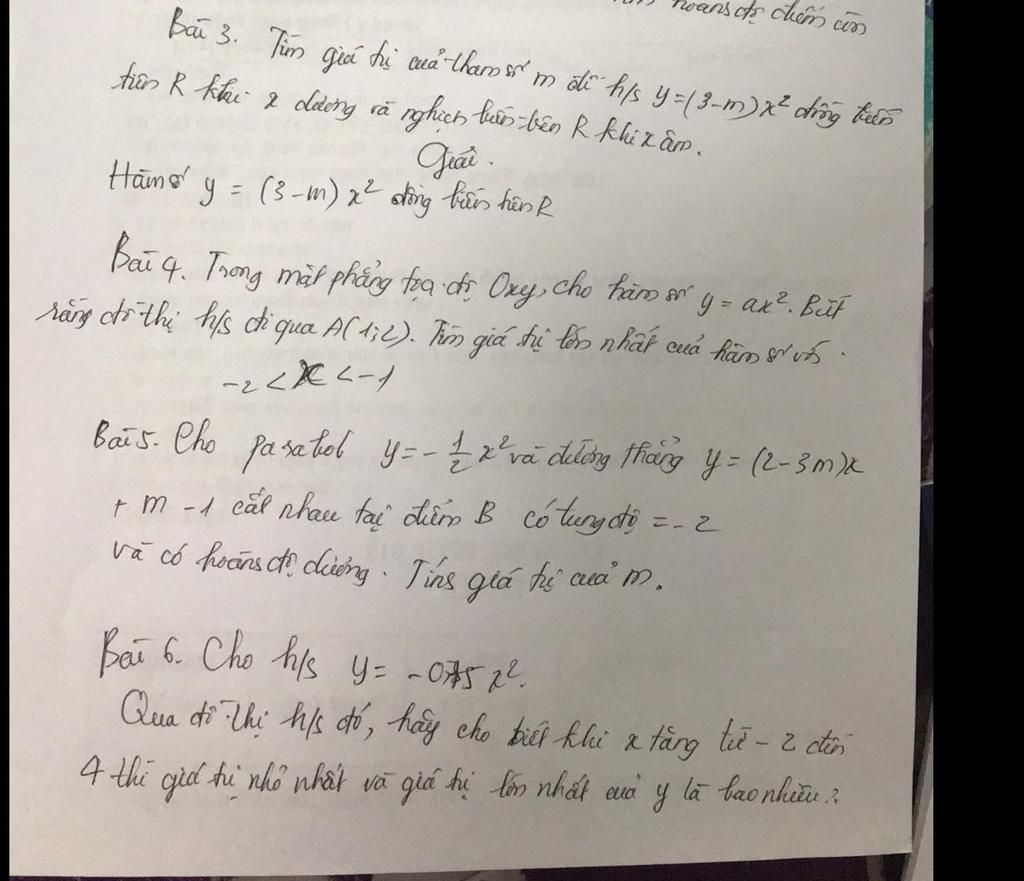 hoành độ điểm còn
Bài 3. Tìm giá trị của tham số m để h/s y=(3-m)x² đồng biến
trên R khi x dương và nghịch biến trên R khi x âm.
Giải.
Hàm số y = (3-m)x² đồng biến trên R
Bài 4. Trong mặt phẳng tọa độ Oxy, cho hàm số y = ax². Biết
rằng đồ thị h/s đi qua A(1;2). Tìm giá trị lớn nhất của hàm số với
-2 < x < -1
Bài 5. Cho parabol y = -1/2 x² và đường thẳng y = (2-3m)x
+ m - 1 cắt nhau tại điểm B có tung độ = -2
và có hoành độ dương. Tính giá trị của m.
Bài 6. Cho h/s y = -0,75x².
Qua đồ thị h/s đó, hãy cho biết khi x tăng từ -2 đến
4 thì giá trị nhỏ nhất và giá trị lớn nhất của y là bao nhiêu?